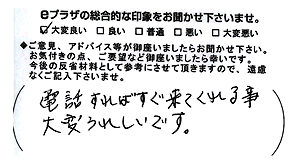 eプラザの総合的な印象をお聞かせ下さいませ。
☑大変良い □良い □普通 □悪い □大変悪い
◆ご意見、アドバイス等が御座いましたらお聞かせ下さい。
お気付きの点、ご要望など御座いましたら幸いです。
今後の反省材料として参考にさせて頂きますので、遠慮
なくご記入下さいませ。
電話すればすぐ来てくれる事
大変うれしいです。